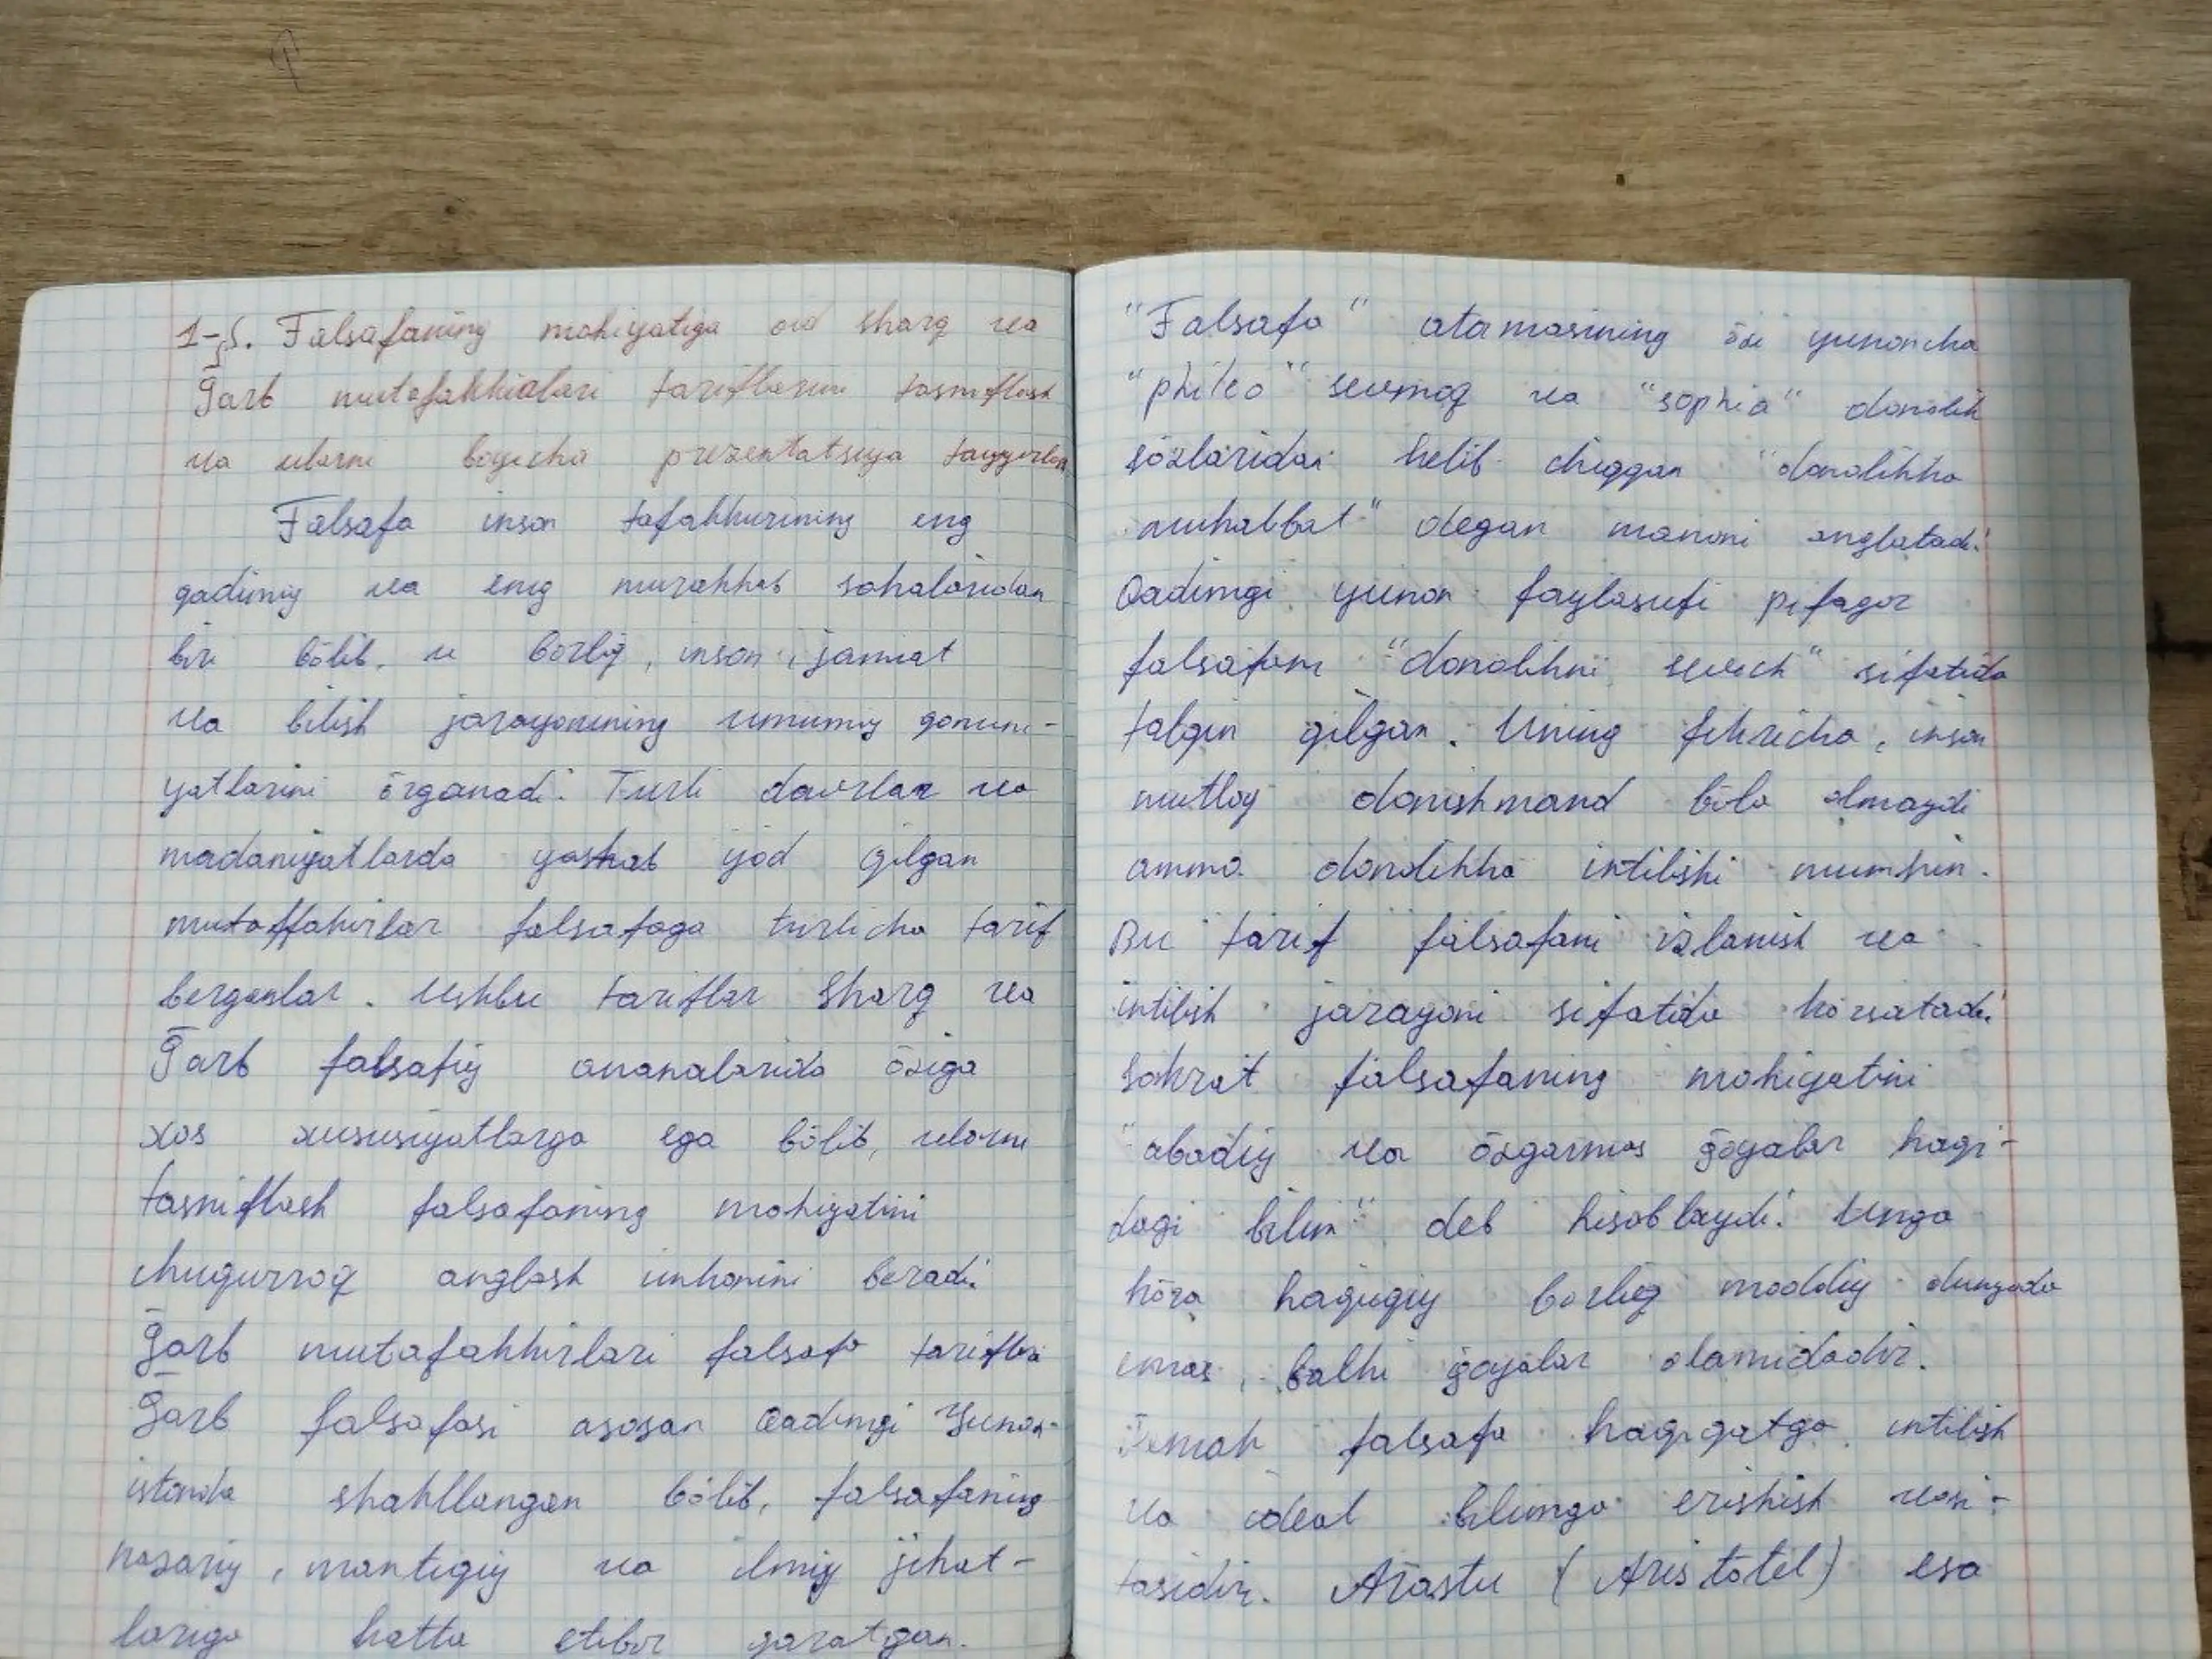 1-§. Falsafaning mohiyatiga oid sharq va
Ḡarb mutafakkirlari tariflarini tasniflash
va ularni boyicha prezentatsiya tayyorlash
Falsafa inson tafakkurining eng
qadimiy va eng murakkab sohalaridan
biri bōlib, u borliq, inson, jamiat
va bilish jarayonining umumiy qonuni-
yatlarini ōrganadi. Turli davrlar va
madaniyatlarda yashab ijod qilgan
mutaffakirlar falsafaga turlicha tarif
berganlar. Ushbu tariflar Sharq va
Ḡarb falsafiy ananalarida ōziga
xos xususiyatlarga ega bōlib, ularni
tasniflash falsafaning mohiyatini
chuqurroq anglash imkonini beradi.
Ḡarb mutafakkirlari falsafa tariflari
Ḡarb falsafasi asosan Qadimgi Yunon-
istonda shakllangan bōlib, falsafaning
nazariy, mantiqiy va ilmiy jihat-
lariga katta etibor qaratgan.
"Falsafa" atamasining ōzi yunoncha
"phileo" sevmoq va "sophia" donolik
sōzlaridan kelib chiqqan "donolikka
muhabbat" degan manoni anglatadi.
Qadimgi yunon faylasufi pifagor
falsafani "donolikni sevish" sifatida
talqin qilgan. Uning fikricha, inson
mutloq donishmand bōla olmaydi
ammo donolikka intilishi mumkin.
Bu tarif falsafani izlanish va
intilish jarayoni sifatida kōrsatadi.
Sokrat falsafaning mohiyatini
"abadiy va ōzgarmas ḡoyalar haqi-
dagi bilim" deb hisoblaydi. Unga
kōra haqiqiy borliq moddiy dunyoda
emas, balki ḡoyalar olamidadir.
Demak falsafa haqiqatga intilish
va ideal bilimga erishish vosi-
tasidir. Arastu (Aristotel) esa